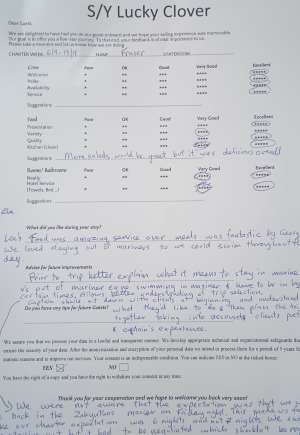 S/Y Lucky Clover
Dear Guest,
We are delighted to have had you as our guests onboard and we hope your sailing experience was memorable.
Our goal is to offer you a five-star journey. To that end, your feedback is of vital importance to us.
Please take a moment and let us know how we are doing.
CHARTER WEEK NAME Fraser DESTINATION
Crew Poor OK Good Very Good Excellent
Welcome * ** *** **** *****
Polite * ** *** **** *****
Availability * ** *** **** *****
Service * ** *** **** *****
Suggestions
Food Poor OK Good Very Good Excellent
Presentation * ** *** **** *****
Variety * ** *** **** *****
Quality * ** *** **** *****
Kitchen (clean) * ** *** **** *****
Suggestions More salads would be great but it was delicious overall
Rooms/ Bathrooms Poor OK Good Very Good Excellent
Ready * ** *** **** *****
Hotel Service
(Towels, Bed ..) * ** *** **** *****
Suggestions
What did you like during your stay?
Food was amazing, service over meals was fantastic by
We loved staying out of marinas so we could swim throughout the
day.
Advise for future improvements
Prior to trip better explain what it means to stay in marina
vs out of marina eg no swimming in marina & have to be in by
certain times. Allows better understanding of trip selection.
Do you have any tips for future Guests? Captain should sit down with clients at beginning and understand
what they'd like to do & then plans the trip
together taking into account clients
& captain's experience.
We assure you that we process your data in a lawful and transparent manner. We develop appropriate technical and organizational safeguards that
ensure the security of your data. After the anonymization and encryption of your personal data we intend to process them for a period of 5 years
statistic reasons and to improve our services. Your consent is an indispensable condition. You can indicate YES or NO at the linked boxes:
YES NO
You have the right of a copy and you have the right to withdraw your consent at any time.
Thank you for your cooperation and we hope to welcome you back very soon!
We were not aware that the expectation was that we go
back in the marina on Friday night. This made us
our charter expectation was 6 nights and not 7 nights. We
but it had to be negotiated which shouldn't be